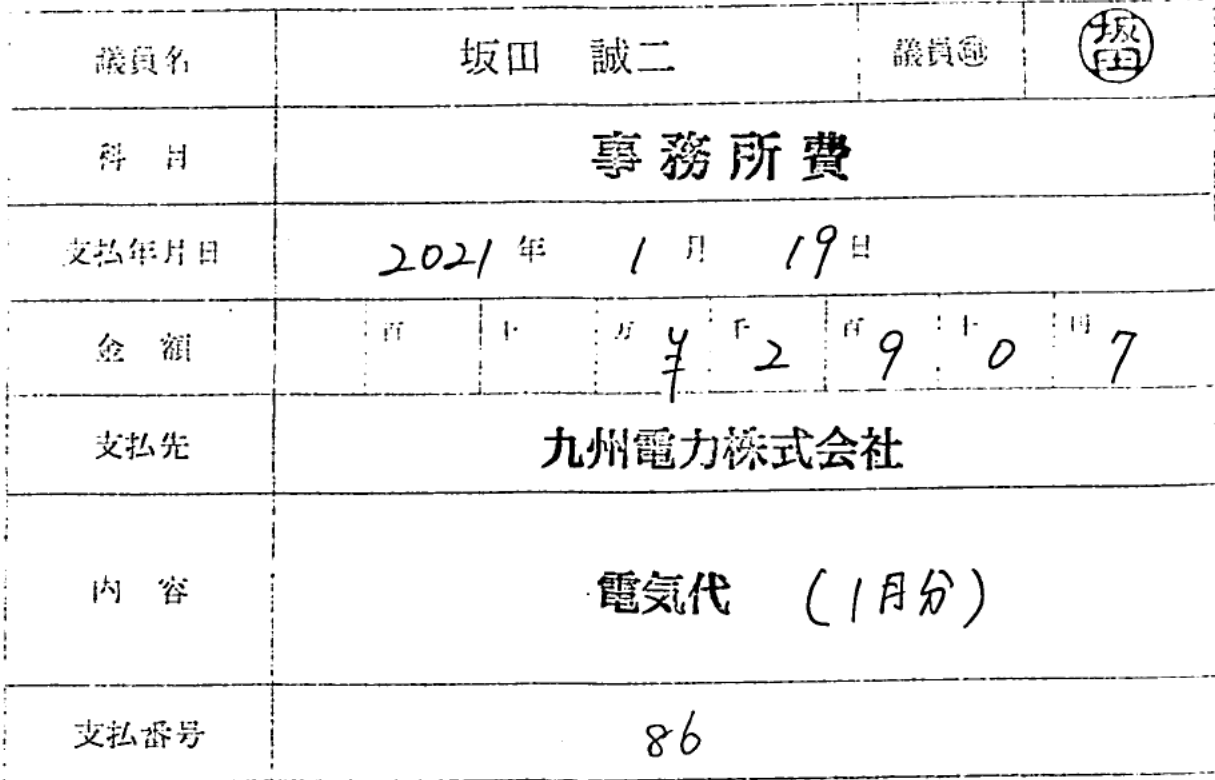 議員名 坂田 誠二 議員㊞ 坂田
科 目 事務所費
支払年月日 2021年 1月 19日
金 額 百 十 万 ¥ 千 2 百 9 十 0 円 7
支払先 九州電力株式会社
内 容 電気代 (1月分)
支払番号 86